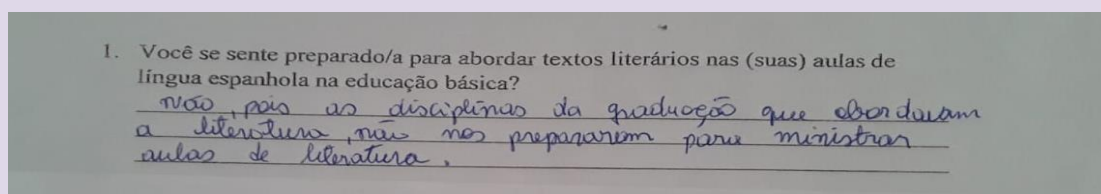 1. Você se sente preparado/a para abordar textos literários nas (suas) aulas de
língua espanhola na educação básica?
Não, pois as disciplinas da graduação que abordavam
a literatura, não nos prepararam para ministrar
aulas de literatura.